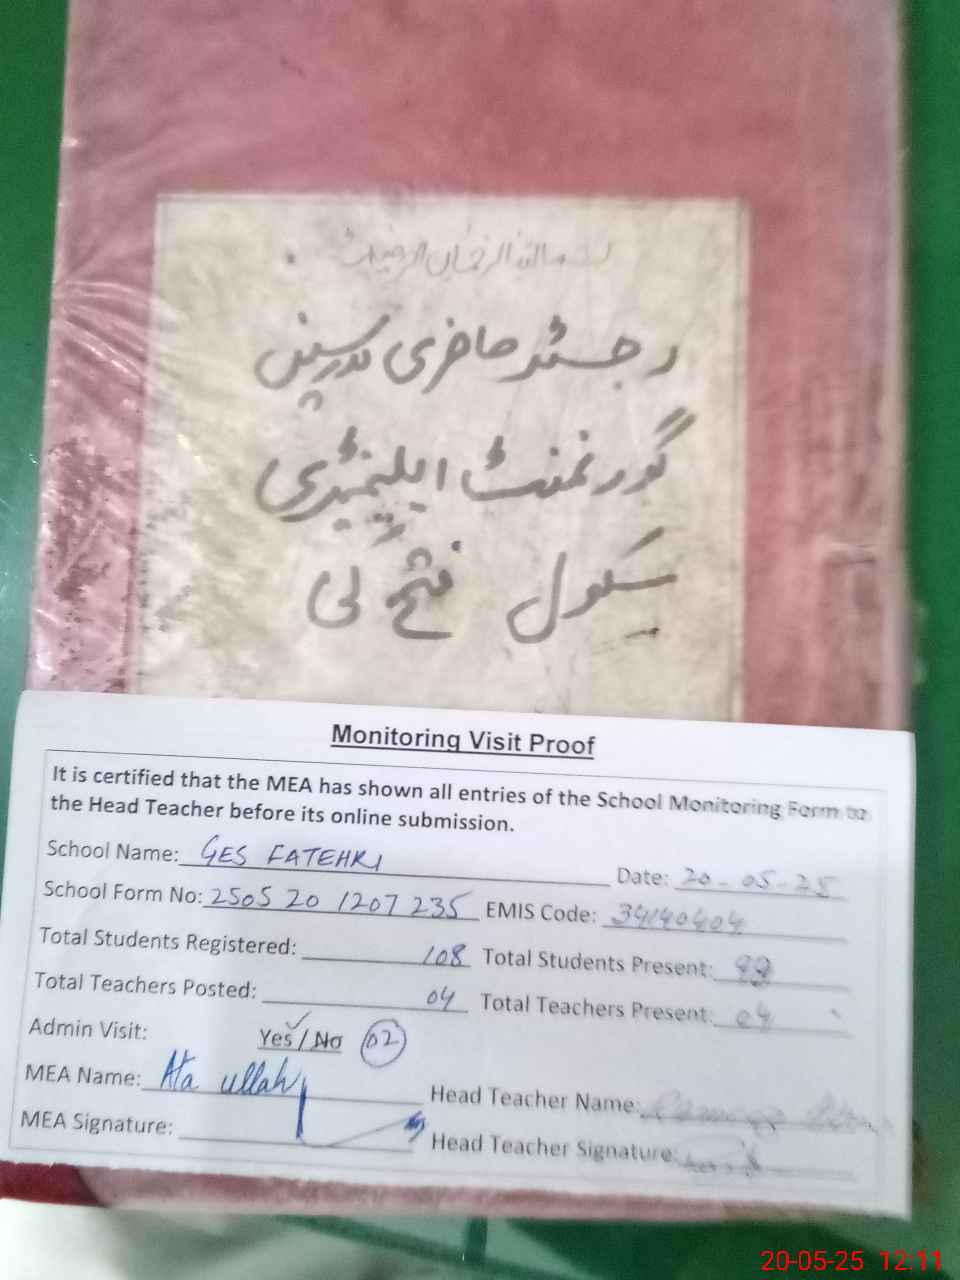 بسم اللہ الرحمٰن الرحیم
رجسٹر حاضری مدرسین
گورنمنٹ ایلیمنٹری
سکول فتح کی
Monitoring Visit Proof
It is certified that the MEA has shown all entries of the School Monitoring Form to
the Head Teacher before its online submission.
School Name: GES FATEHKI Date: 20-05-25
School Form No: 2505 20 1207 235 EMIS Code: 34140404
Total Students Registered: 108 Total Students Present:
Total Teachers Posted: 04 Total Teachers Present: 04
Admin Visit: Yes / No 02
MEA Name: Ata ullah Head Teacher Name:
MEA Signature: Head Teacher Signature:
20-05-25 12:11